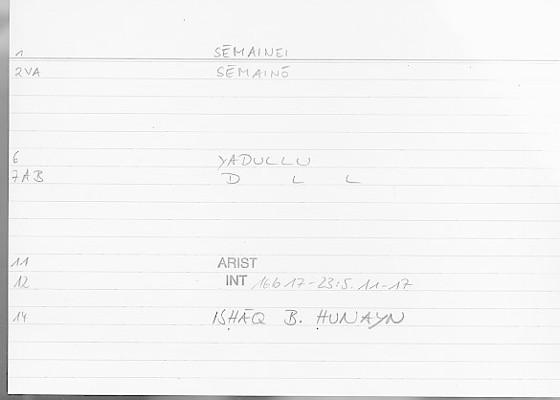 1 SĒMAINEI
2VA SĒMAINŌ
6 YADULLU
7AB D L L
11 ARIST
12 INT 16b17-23:5.11-17
14 ISḤĀQ B. ḤUNAYN